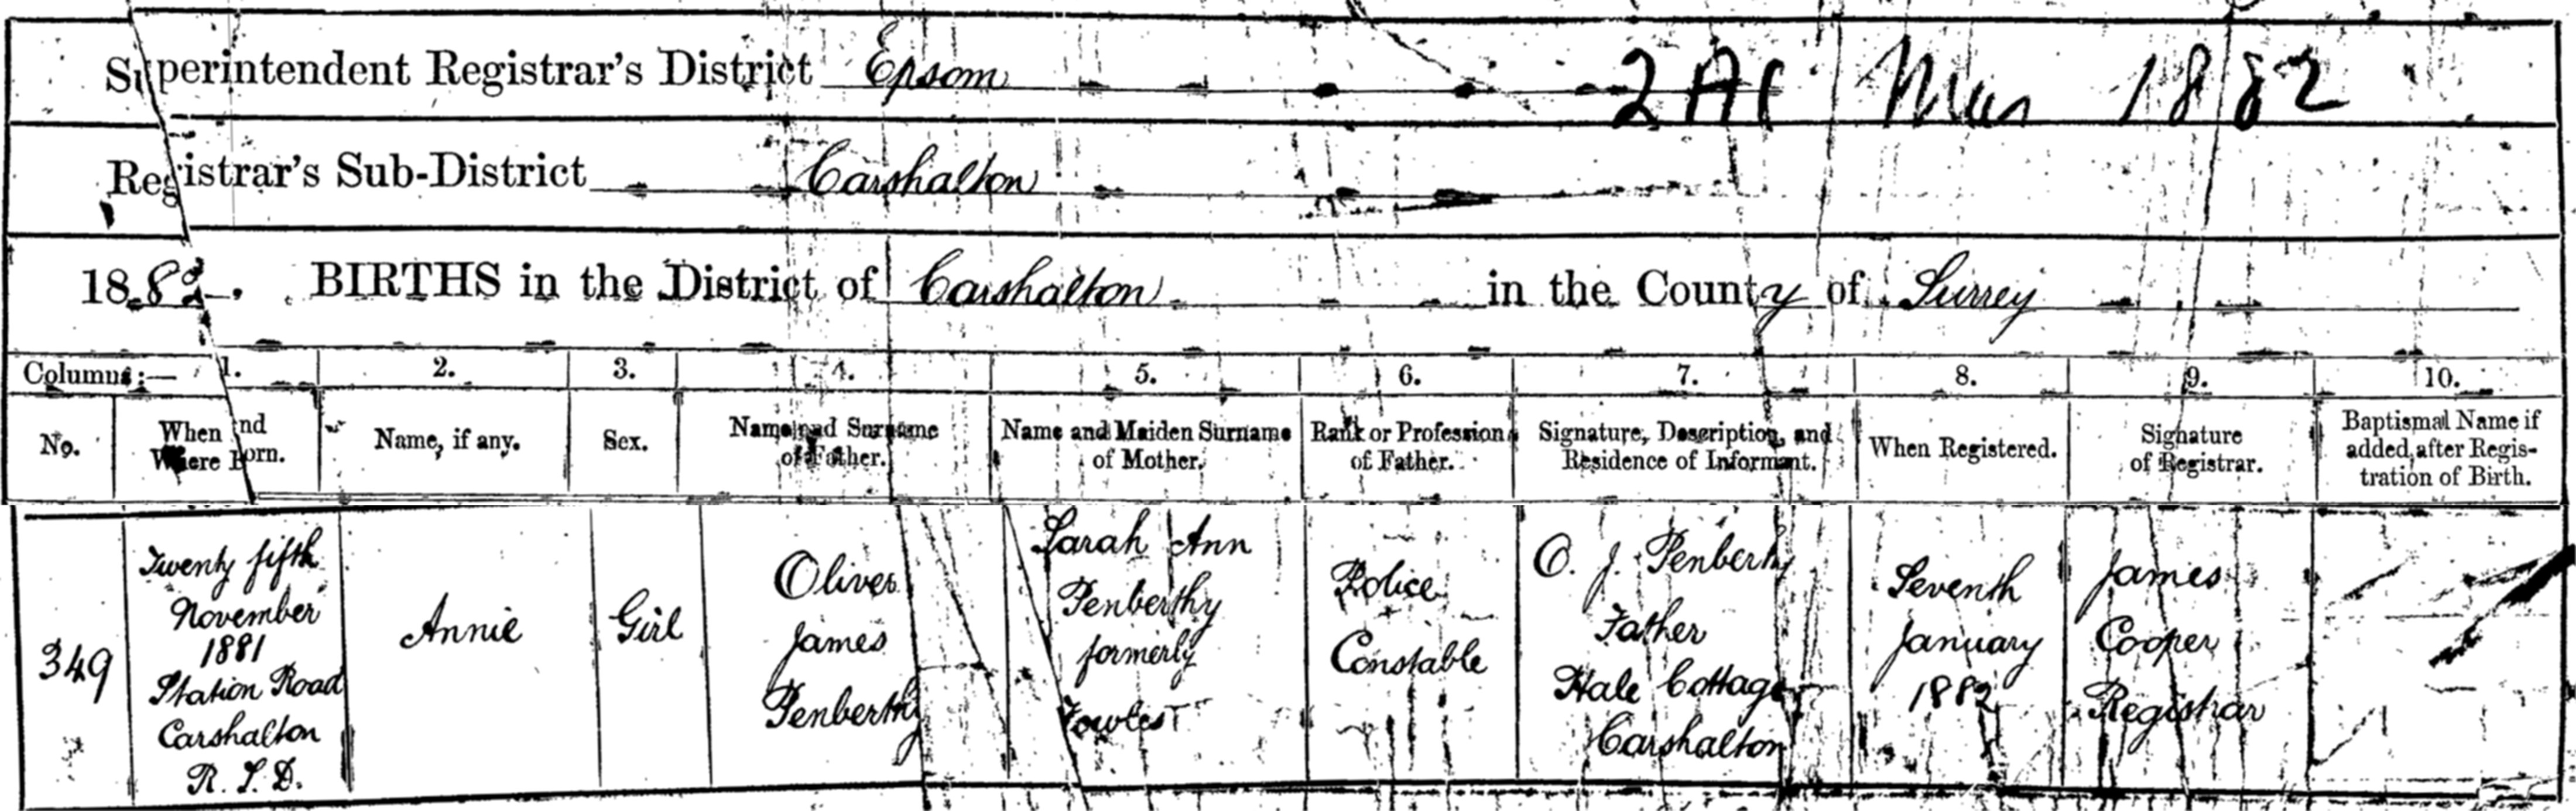 Superintendent Registrar's District Epsom
2 A Mar 1882
Registrar's Sub-District Carshalton
1882. BIRTHS in the District of Carshalton in the County of Surrey
Columns:— 1. 2. 3. 4. 5. 6. 7. 8. 9. 10.
No.
When and
Where Born.
Name, if any.
Sex.
Name and Surname
of Father.
Name and Maiden Surname
of Mother.
Rank or Profession
of Father.
Signature, Description, and
Residence of Informant.
When Registered.
Signature
of Registrar.
Baptismal Name if
added after Regis-
tration of Birth.
349
Twenty fifth
November
1881
Station Road
Carshalton
R. S. D.
Annie
Girl
Oliver
James
Penberthy
Sarah Ann
Penberthy
formerly
Fowles
Police
Constable
O. J. Penberthy
Father
Hale Cottage
Carshalton
Seventh
January
1882
James
Cooper
Registrar